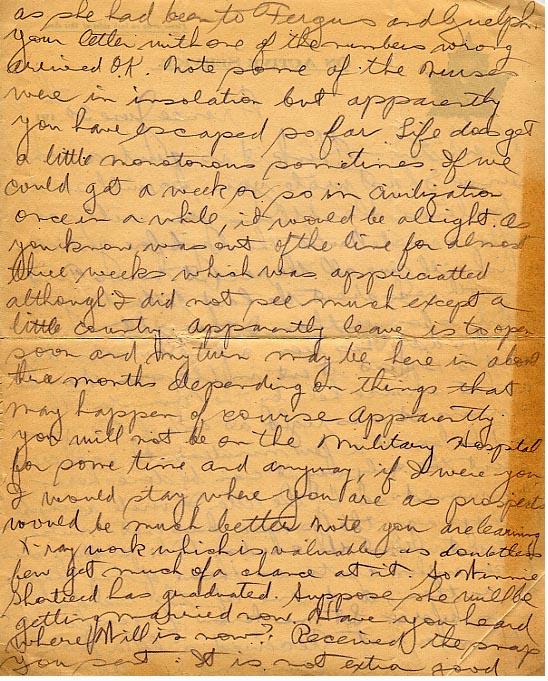 as she had been to Fergus and Guelph.
your letter with one of the numbers wrong
arrived O.K. Note some of the Nurses
were in insolation but apparently
you have escaped so far Life does get
a little monotonous sometimes. If we
could get a week or so in civilization
once in a while, it would be alright. As
you know was out of the line for almost
three weeks which was appreciatted
although I did not see much except a
little country Apparently leave is to open
soon and my turn may be here in about
three months depending on things that
may happen of course Apparently
you will not be on the Military Hospital
for some time and anyway, if I were you
I would stay where you are as prospects
would be much better Note you are learning
X-ray work which is valuable as doubtless
few get much of a chance at it. So Winnie
has graduated. Suppose she will be
getting married now. Have you heard
where Will is now? Received the snap
you sent. It is not extra good